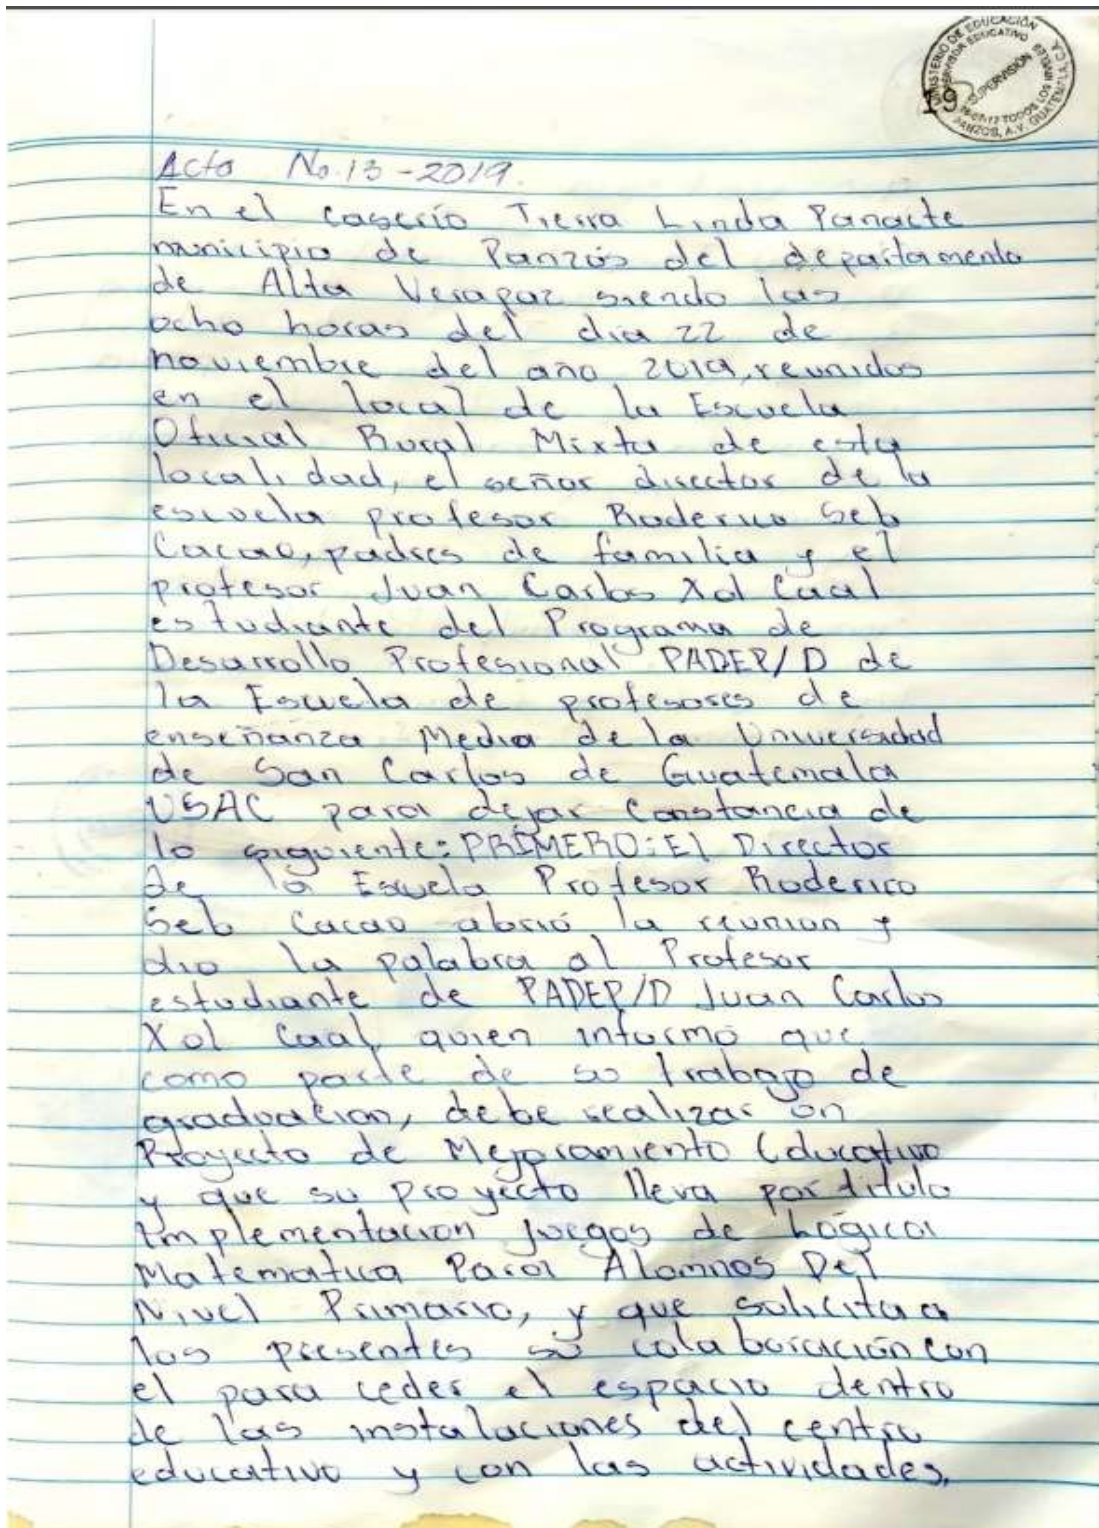 MINISTERIO DE EDUCACIÓN
SUPERVISOR EDUCATIVO
SUPERVISIÓN
TODOS LOS NIVELES
PANZOS, A.V. GUATEMALA, C.A.
19
Acta No. 13-2019.
En el caserío Tierra Linda Panacte
municipio de Panzós del departamento
de Alta Verapaz siendo las
ocho horas del dia 22 de
noviembre del año 2019, reunidos
en el local de la Escuela
Oficial Rural Mixta de esta
localidad, el señor director de la
escuela profesor Roderico Seb
Cacao, padres de familia y el
profesor Juan Carlos Xol Caal
estudiante del Programa de
Desarrollo Profesional PADEP/D de
la Escuela de profesores de
enseñanza Media de la Universidad
de San Carlos de Guatemala
USAC para dejar Constancia de
lo siguiente: PRIMERO: El Director
de la Escuela Profesor Roderico
Seb Cacao abrió la reunion y
dio la palabra al Profesor
estudiante de PADEP/D Juan Carlos
Xol Caal, quien informó que
como parte de su trabajo de
graduacion, debe realizar un
Proyecto de Mejoramiento Educativo
y que su proyecto lleva por titulo
Implementacion juegos de Lógica
Matematica Para Alomnos Del
Nivel Primario, y que solicita a
los presentes su colaboración con
el para ceder el espacio dentro
de las instalaciones del centro
educativo y con las actividades,